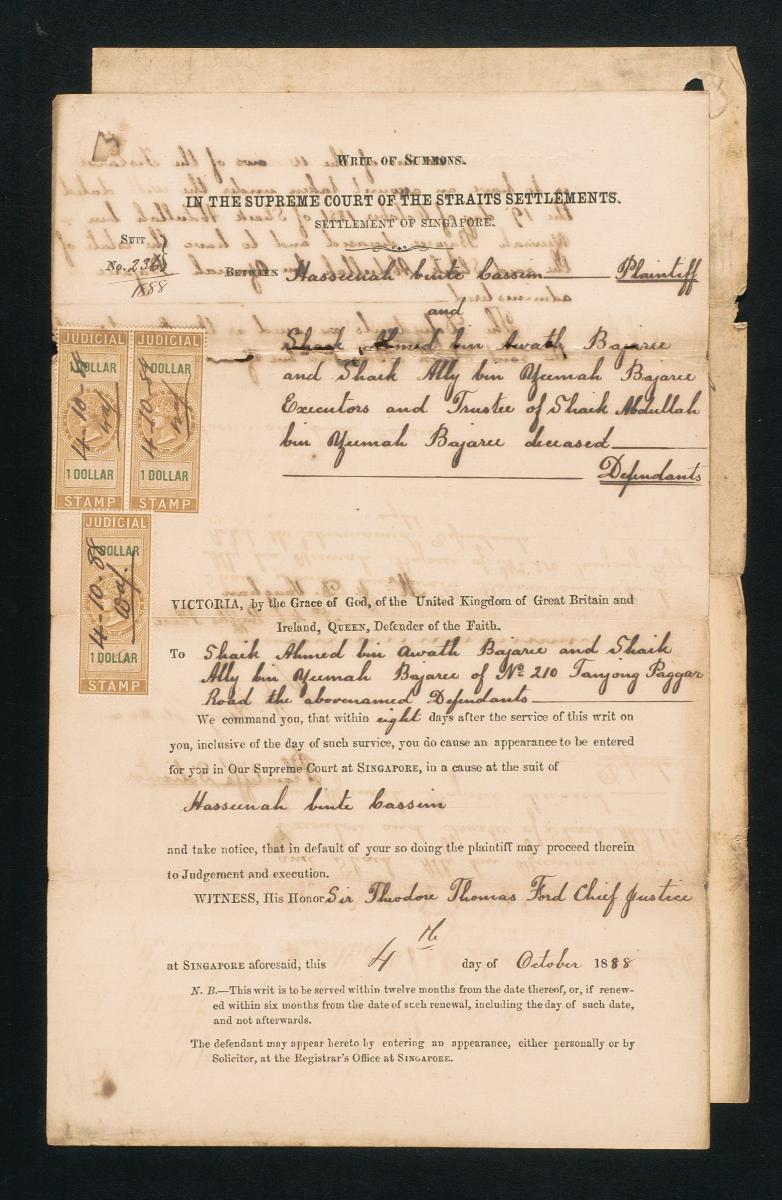 WRIT OF SUMMONS.
IN THE SUPREME COURT OF THE STRAITS SETTLEMENTS.
SETTLEMENT OF SINGAPORE.
SUIT
No.
1888
BETWEEN Hasseenah binte Cassim Plaintiff
and
Shaik Ahmed bin Awath Bajaree
and Shaik Ally bin Yeemah Bajaree
Executors and Trustee of Shaik Abdullah
bin Yeemah Bajaree deceased
Defendants
JUDICIAL
1 DOLLAR
4-10-88
1 DOLLAR
STAMP
JUDICIAL
1 DOLLAR
4-10-88
1 DOLLAR
STAMP
JUDICIAL
1 DOLLAR
4-10-88
1 DOLLAR
STAMP
VICTORIA, by the Grace of God, of the United Kingdom of Great Britain and
Ireland, QUEEN, Defender of the Faith.
To Shaik Ahmed bin Awath Bajaree and Shaik
Ally bin Yeemah Bajaree of No. 210 Tanjong Paggar
Road the abovenamed Defendants
We command you, that within eight days after the service of this writ on
you, inclusive of the day of such survice, you do cause an appearance to be entered
for you in Our Supreme Court at SINGAPORE, in a cause at the suit of
Hasseenah binte Cassim
and take notice, that in default of your so doing the plaintiff may proceed therein
to Judgement and execution.
WITNESS, His Honor Sir Theodore Thomas Ford Chief Justice
at SINGAPORE aforesaid, this 4th day of October 1888
N. B.—This writ is to be served within twelve months from the date thereof, or, if renew-
ed within six months from the date of such renewal, including the day of such date,
and not afterwards.
The defendant may appear hereto by entering an appearance, either personally or by
Solicitor, at the Registrar's Office at SINGAPORE.